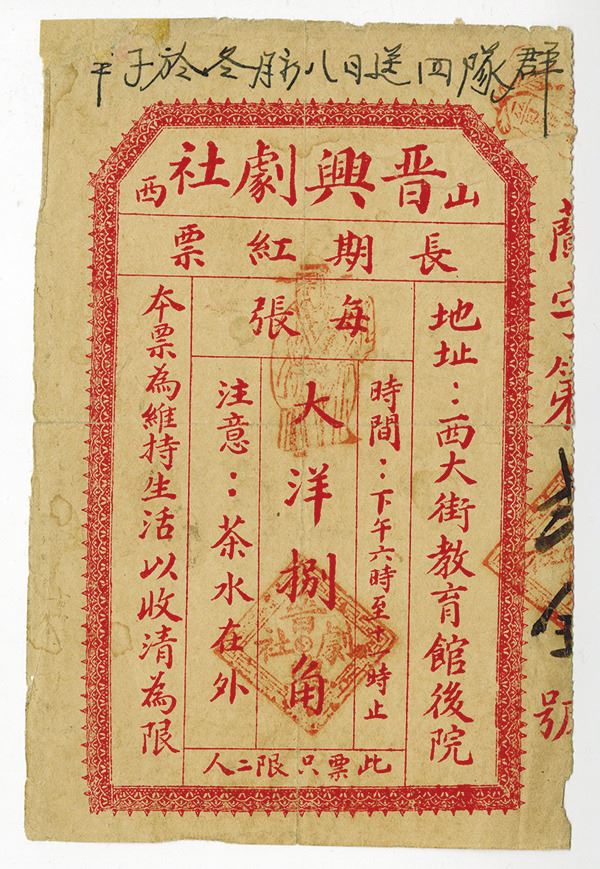 於冬 八日送四隊群
山西晉興劇社
長期紅票
每張
地址：西大街教育館後院
時間：下午六時至十一時止
大洋捌角
注意：茶水在外
本票為維持生活以收清為限
此票只限二人
晉劇社
字第 號